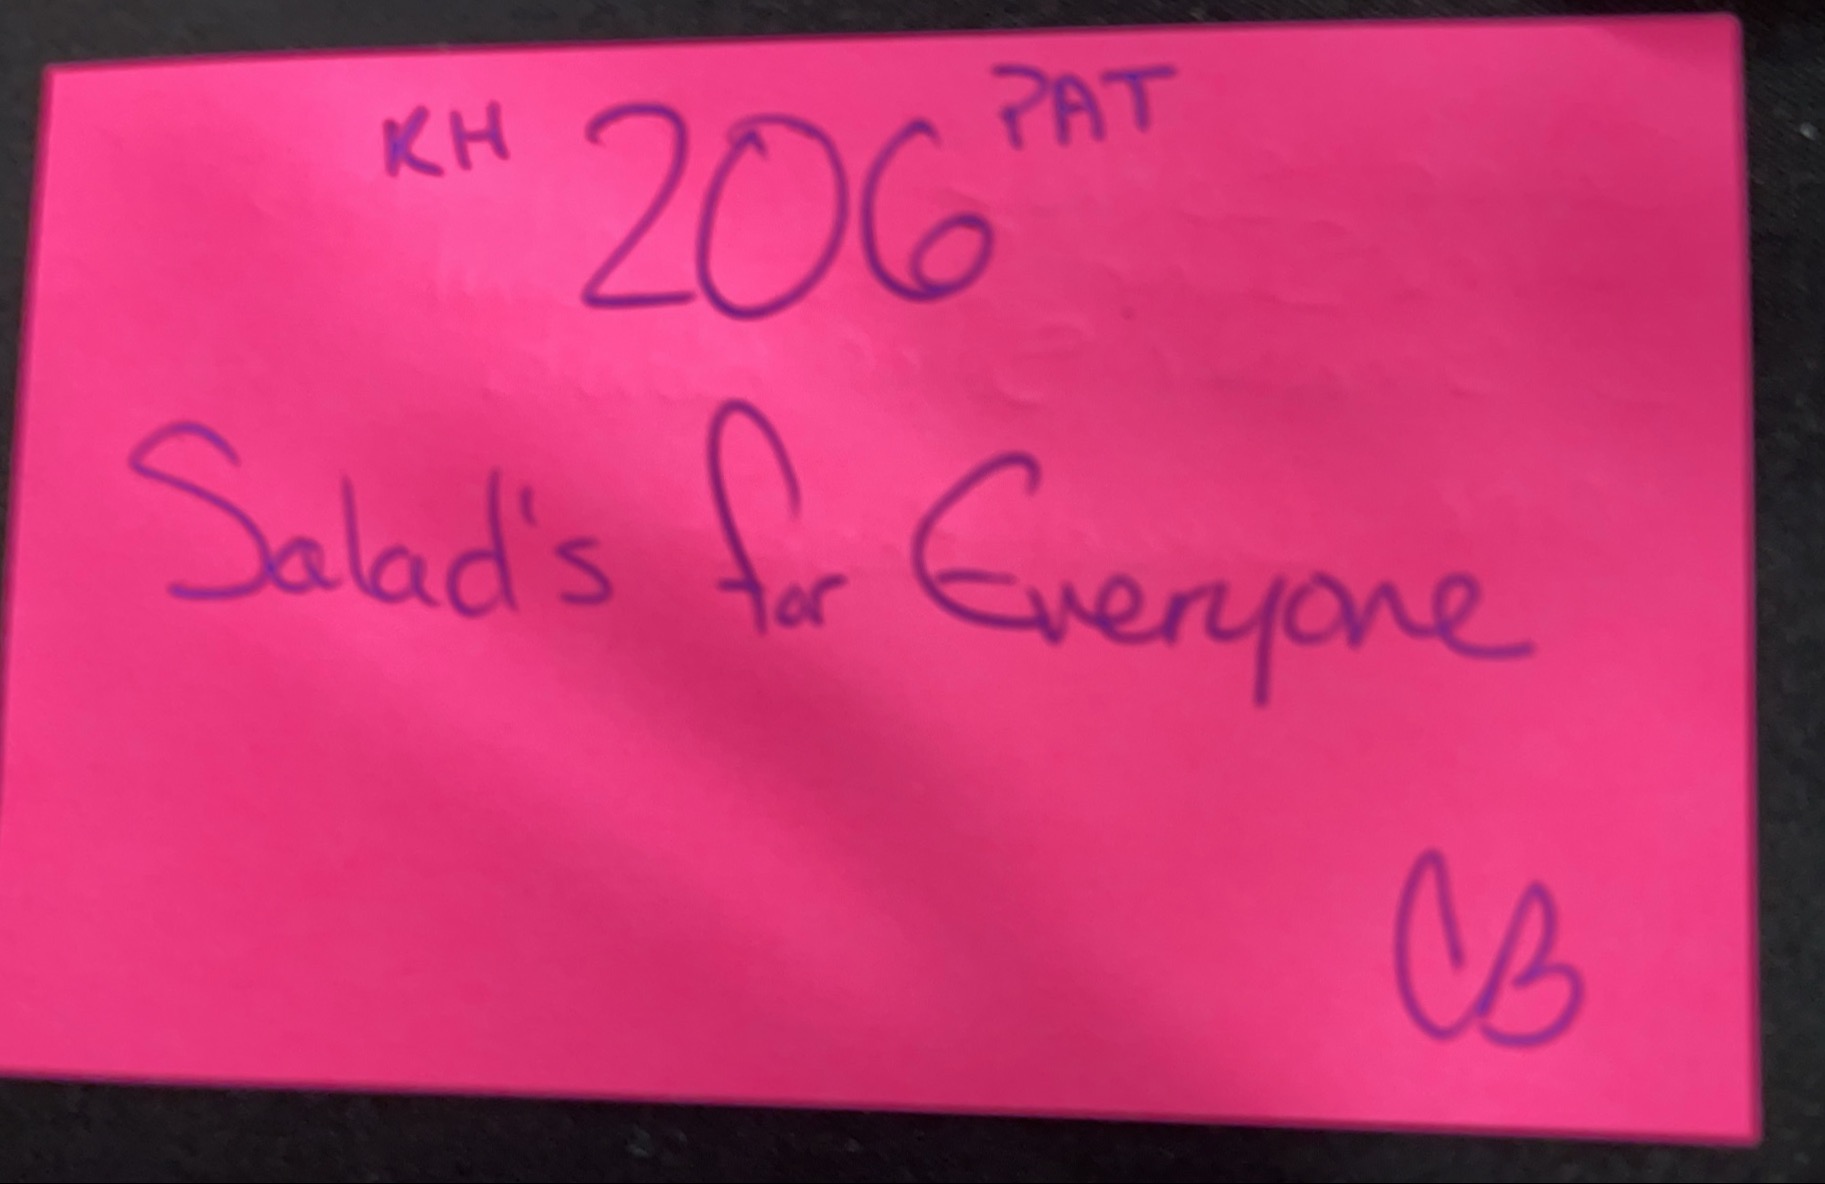 KH 206 PAT
Salad's for Everyone
CB